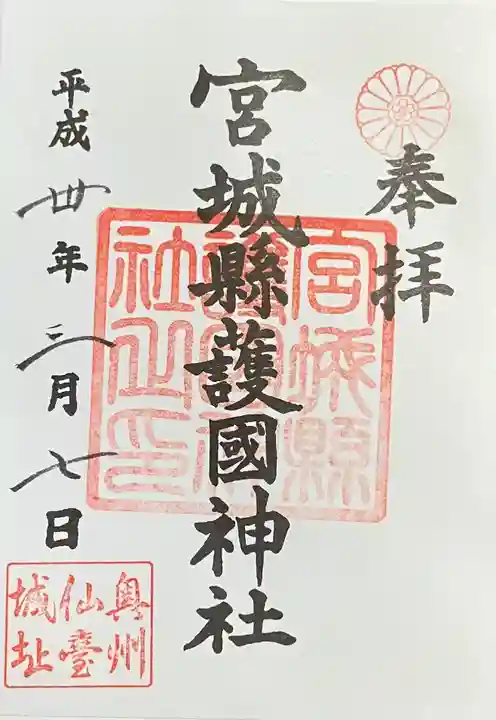 奉拝
宮城縣護國神社
平成卅年三月七日
宮城縣
護國神
社之印
奥州
仙臺
城址